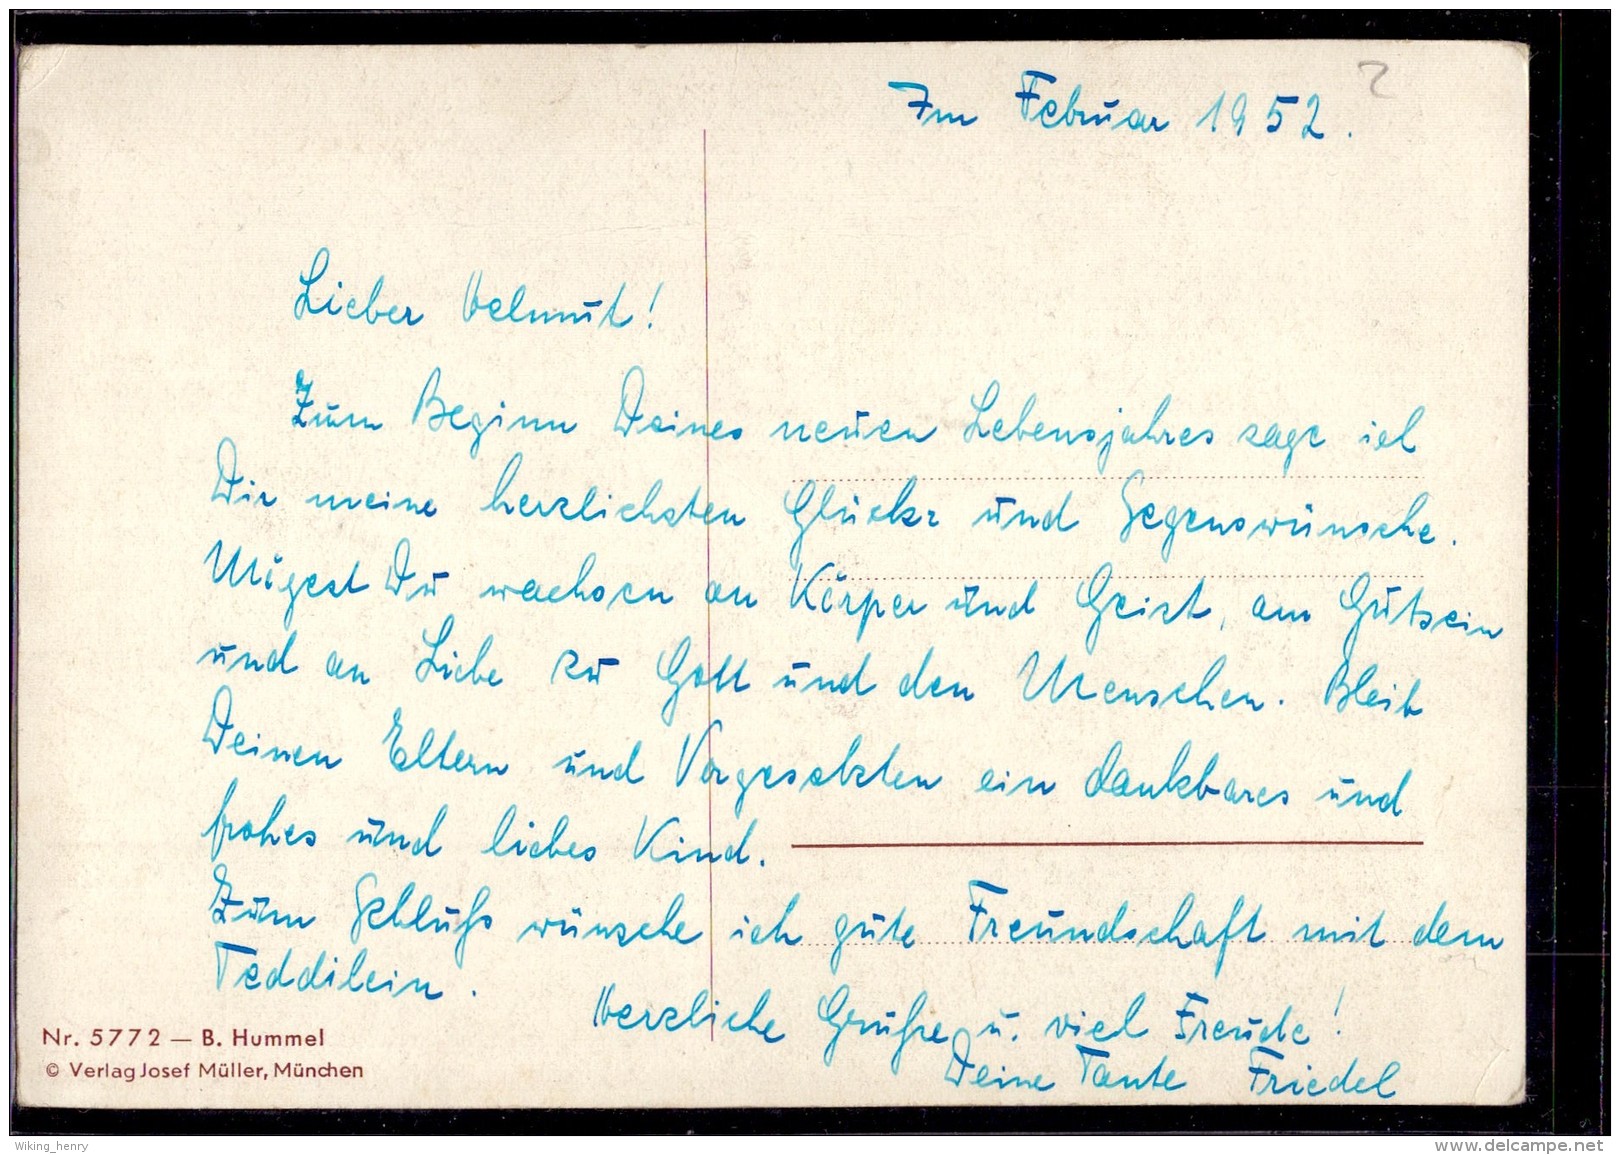 Im Februar 1952.
2
Lieber Helmut!
Zum Beginn Deines neuen Lebensjahres sage ich
Dir meine herzlichsten Glücks und Segenswünsche.
Mögest Du wachsen an Körper und Geist, am Gutsein
und an Liebe zu Gott und den Menschen. Bleib
Deinen Eltern und Vorgesetzten ein dankbares und
frohes und liebes Kind.
Zum Schluß wünsche ich gute Freundschaft mit dem
Teddilein.
Herzliche Grüße u. viel Freude!
Deine Tante Friedel
Nr. 5772 — B. Hummel
© Verlag Josef Müller, München
Wiking_henry
www.delcampe.net